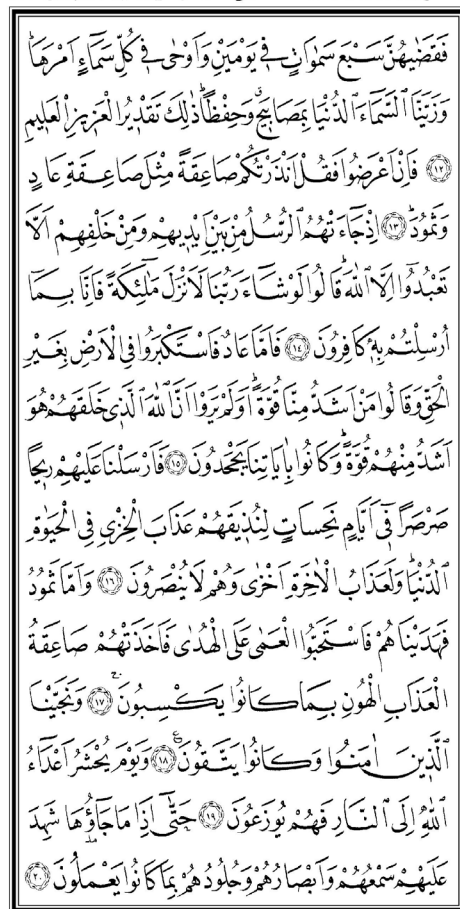 فَقَضٰيهُنَّ سَبْعَ سَمٰوَاتٍ فٖي يَوْمَيْنِ وَاَوْحٰى فٖي كُلِّ سَمَٓاءٍ اَمْرَهَاۜ
وَزَيَّنَّا السَّمَٓاءَ الدُّنْيَا بِمَصَابٖيحَۗ وَحِفْظًاۜ ذٰلِكَ تَقْدٖيرُ الْعَزٖيزِ الْعَلٖيمِ
﴿١٢﴾ فَاِنْ اَعْرَضُوا فَقُلْ اَنْذَرْتُكُمْ صَاعِقَةً مِثْلَ صَاعِقَةِ عَادٍ
وَثَمُودَۜ ﴿١٣﴾ اِذْ جَٓاءَتْهُمُ الرُّسُلُ مِنْ بَيْنِ اَيْدٖيهِمْ وَمِنْ خَلْفِهِمْ اَلَّا
تَعْبُدُٓوا اِلَّا اللّٰهَۜ قَالُوا لَوْ شَٓاءَ رَبُّنَا لَاَنْزَلَ مَلٰٓئِكَةً فَاِنَّا بِمَٓا
اُرْسِلْتُمْ بِهٖ كَافِرُونَ ﴿١٤﴾ فَاَمَّا عَادٌ فَاسْتَكْبَرُوا فِي الْاَرْضِ بِغَيْرِ
الْحَقِّ وَقَالُوا مَنْ اَشَدُّ مِنَّا قُوَّةًۜ اَوَلَمْ يَرَوْا اَنَّ اللّٰهَ الَّذٖي خَلَقَهُمْ هُوَ
اَشَدُّ مِنْهُمْ قُوَّةًۜ وَكَانُوا بِاٰيَاتِنَا يَجْحَدُونَ ﴿١٥﴾ فَاَرْسَلْنَا عَلَيْهِمْ رٖيحًا
صَرْصَرًا فٖٓي اَيَّامٍ نَحِسَاتٍ لِنُذٖيقَهُمْ عَذَابَ الْخِزْيِ فِي الْحَيٰوةِ
الدُّنْيَاۜ وَلَعَذَابُ الْاٰخِرَةِ اَخْزٰى وَهُمْ لَا يُنْصَرُونَ ﴿١٦﴾ وَاَمَّا ثَمُودُ
فَهَدَيْنَاهُمْ فَاسْتَحَبُّوا الْعَمٰى عَلَى الْهُدٰى فَاَخَذَتْهُمْ صَاعِقَةُ
الْعَذَابِ الْهُونِ بِمَا كَانُوا يَكْسِبُونَۚ ﴿١٧﴾ وَنَجَّيْنَا
الَّذٖينَ اٰمَنُوا وَكَانُوا يَتَّقُونَ ﴿١٨﴾ وَيَوْمَ يُحْشَرُ اَعْدَٓاءُ
اللّٰهِ اِلَى النَّارِ فَهُمْ يُوزَعُونَ ﴿١٩﴾ حَتّٰٓى اِذَا مَا جَٓاؤُ۫هَا شَهِدَ
عَلَيْهِمْ سَمْعُهُمْ وَاَبْصَارُهُمْ وَجُلُودُهُمْ بِمَا كَانُوا يَعْمَلُونَ ﴿٢٠﴾